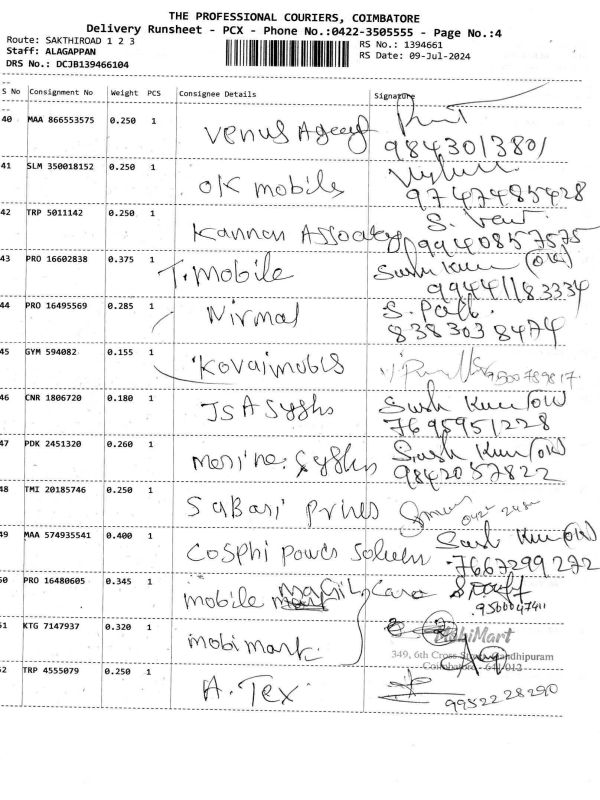 THE PROFESSIONAL COURIERS, COIMBATORE
Delivery Runsheet - PCX - Phone No.:0422-3505555 - Page No.:4
Route: SAKTHIROAD 1 2 3
Staff: ALAGAPPAN
DRS No.: DCJB139466104
RS No.: 1394661
RS Date: 09-Jul-2024
S No Consignment No Weight PCS Consignee Details Signature
40 MAA 866553575 0.250 1 Venus
9843013801
41 SLM 350018152 0.250 1 OK mobile
9747485428
42 TRP 5011142 0.250 1 Kannan
9940857575
43 PRO 16602838 0.375 1 T. mobile
(OK)
44 PRO 16495569 0.285 1 Nirmal
8383038474
45 GYM 594082 0.155 1
9500789817
46 CNR 1806720 0.180 1 JSA
7695951228
47 PDK 2451320 0.260 1
9842057822
48 TMI 20185746 0.250 1 Sabari
49 MAA 574935541 0.400 1 Power
7667299272
50 PRO 16480605 0.345 1 mobile Care
9500047411
51 KTG 7147937 0.320 1 mobimart
MobiMart
349, 6th Cross Street, Gandhipuram
Coimbatore - 641 012
52 TRP 4555079 0.250 1 A. Tex
9952228290